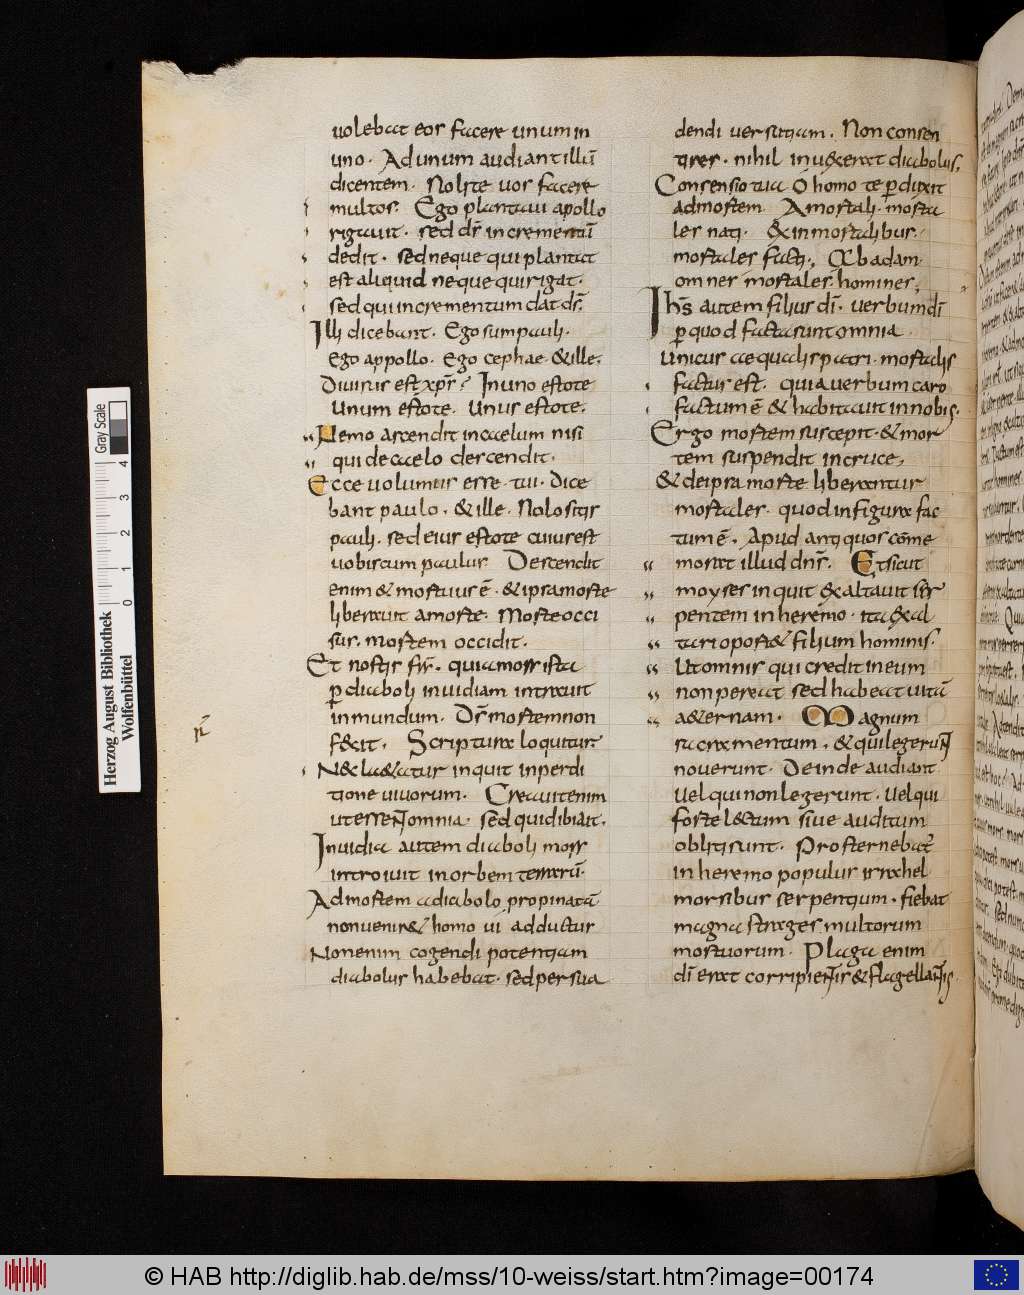 uolebat eos facere unum in
uno. Ad unum audiant illū
dicentem. Nolite uos facere
multos. Ego plantaui apollo
rigauit. sed dS̄ incrementū
dedit. sed neque qui plantat
est aliquid neque qui rigat.
sed qui incrementum dat dS̄.
Illi dicebant. Ego sum pauli.
ego appollo. ego cephae. & ille.
Diuisus est xpS̄? In uno estote
unum estote. unus estote.
Nemo ascendit in caelum nisi
qui de caelo descendit.
Ecce uolumus esse. tui. Dice
bant paulo. & ille. Nolo sitis
pauli. sed eius estote cuius est
uobiscum paulus. Descendit
enim & mortuus ē. & ipsa morte
liberauit a morte. Morte occi
sus. mortem occidit.
Et nostis frS̄. quia mors ista
p diaboli inuidiam intrauit
in mundum. DS̄ mortem non
fecit. Scriptura loquitur.
Nec laetatur inquit in perdi
tione uiuorum. Creauit enim
ut essent omnia. sed quid ibi ait.
Inuidia autem diaboli mors
introiuit in orbem terrarū.
Ad mortem a diabolo propinatā
non ueniret homo ui adductus
Non enim cogendi potentiam
diabolus habebat. sed persua
dendi uersutiam. Non consen
tires. nihil induxerat diabolus.
Consensio tua ó homo te pduxit
ad mortem. A mortali. morta
les nati. & inmortalibus.
mortales facti. Ab adam
omnes mortales homines.
IhS̄ autem filius dī. uerbum dī
p quod facta sunt omnia.
unicus aequalis patri. mortalis
factus est. quia uerbum caro
factum ē & habitauit in nobis.
Ergo mortem suscepit. & mor
tem suspendit in cruce,
& de ipsa morte liberantur
mortales. quod in figura fac
tum ē. Apud antiquos cōme
morat illud dnS̄. Et sicut
moyses inquit exaltauit ser
pentem in heremo. ita exal
tari oportet filium hominis.
Ut omnis qui credit in eum
non pereat sed habeat uitā
aeternam. Magnum
sacramentum. & qui legerunt
nouerunt. Deinde audiant
uel qui non legerunt. uel qui
forte lectum siue auditum
obliti sunt. Prosternebat
in heremo populus israhel
morsibus serpentium. fiebat
magna strages multorum
mortuorum. Plaga enim
dī erat corripientis & flagellantis
Herzog August Bibliothek
Wolfenbüttel
0 1 2 3 4
Gray Scale
© HAB http://diglib.hab.de/mss/10-weiss/start.htm?image=00174